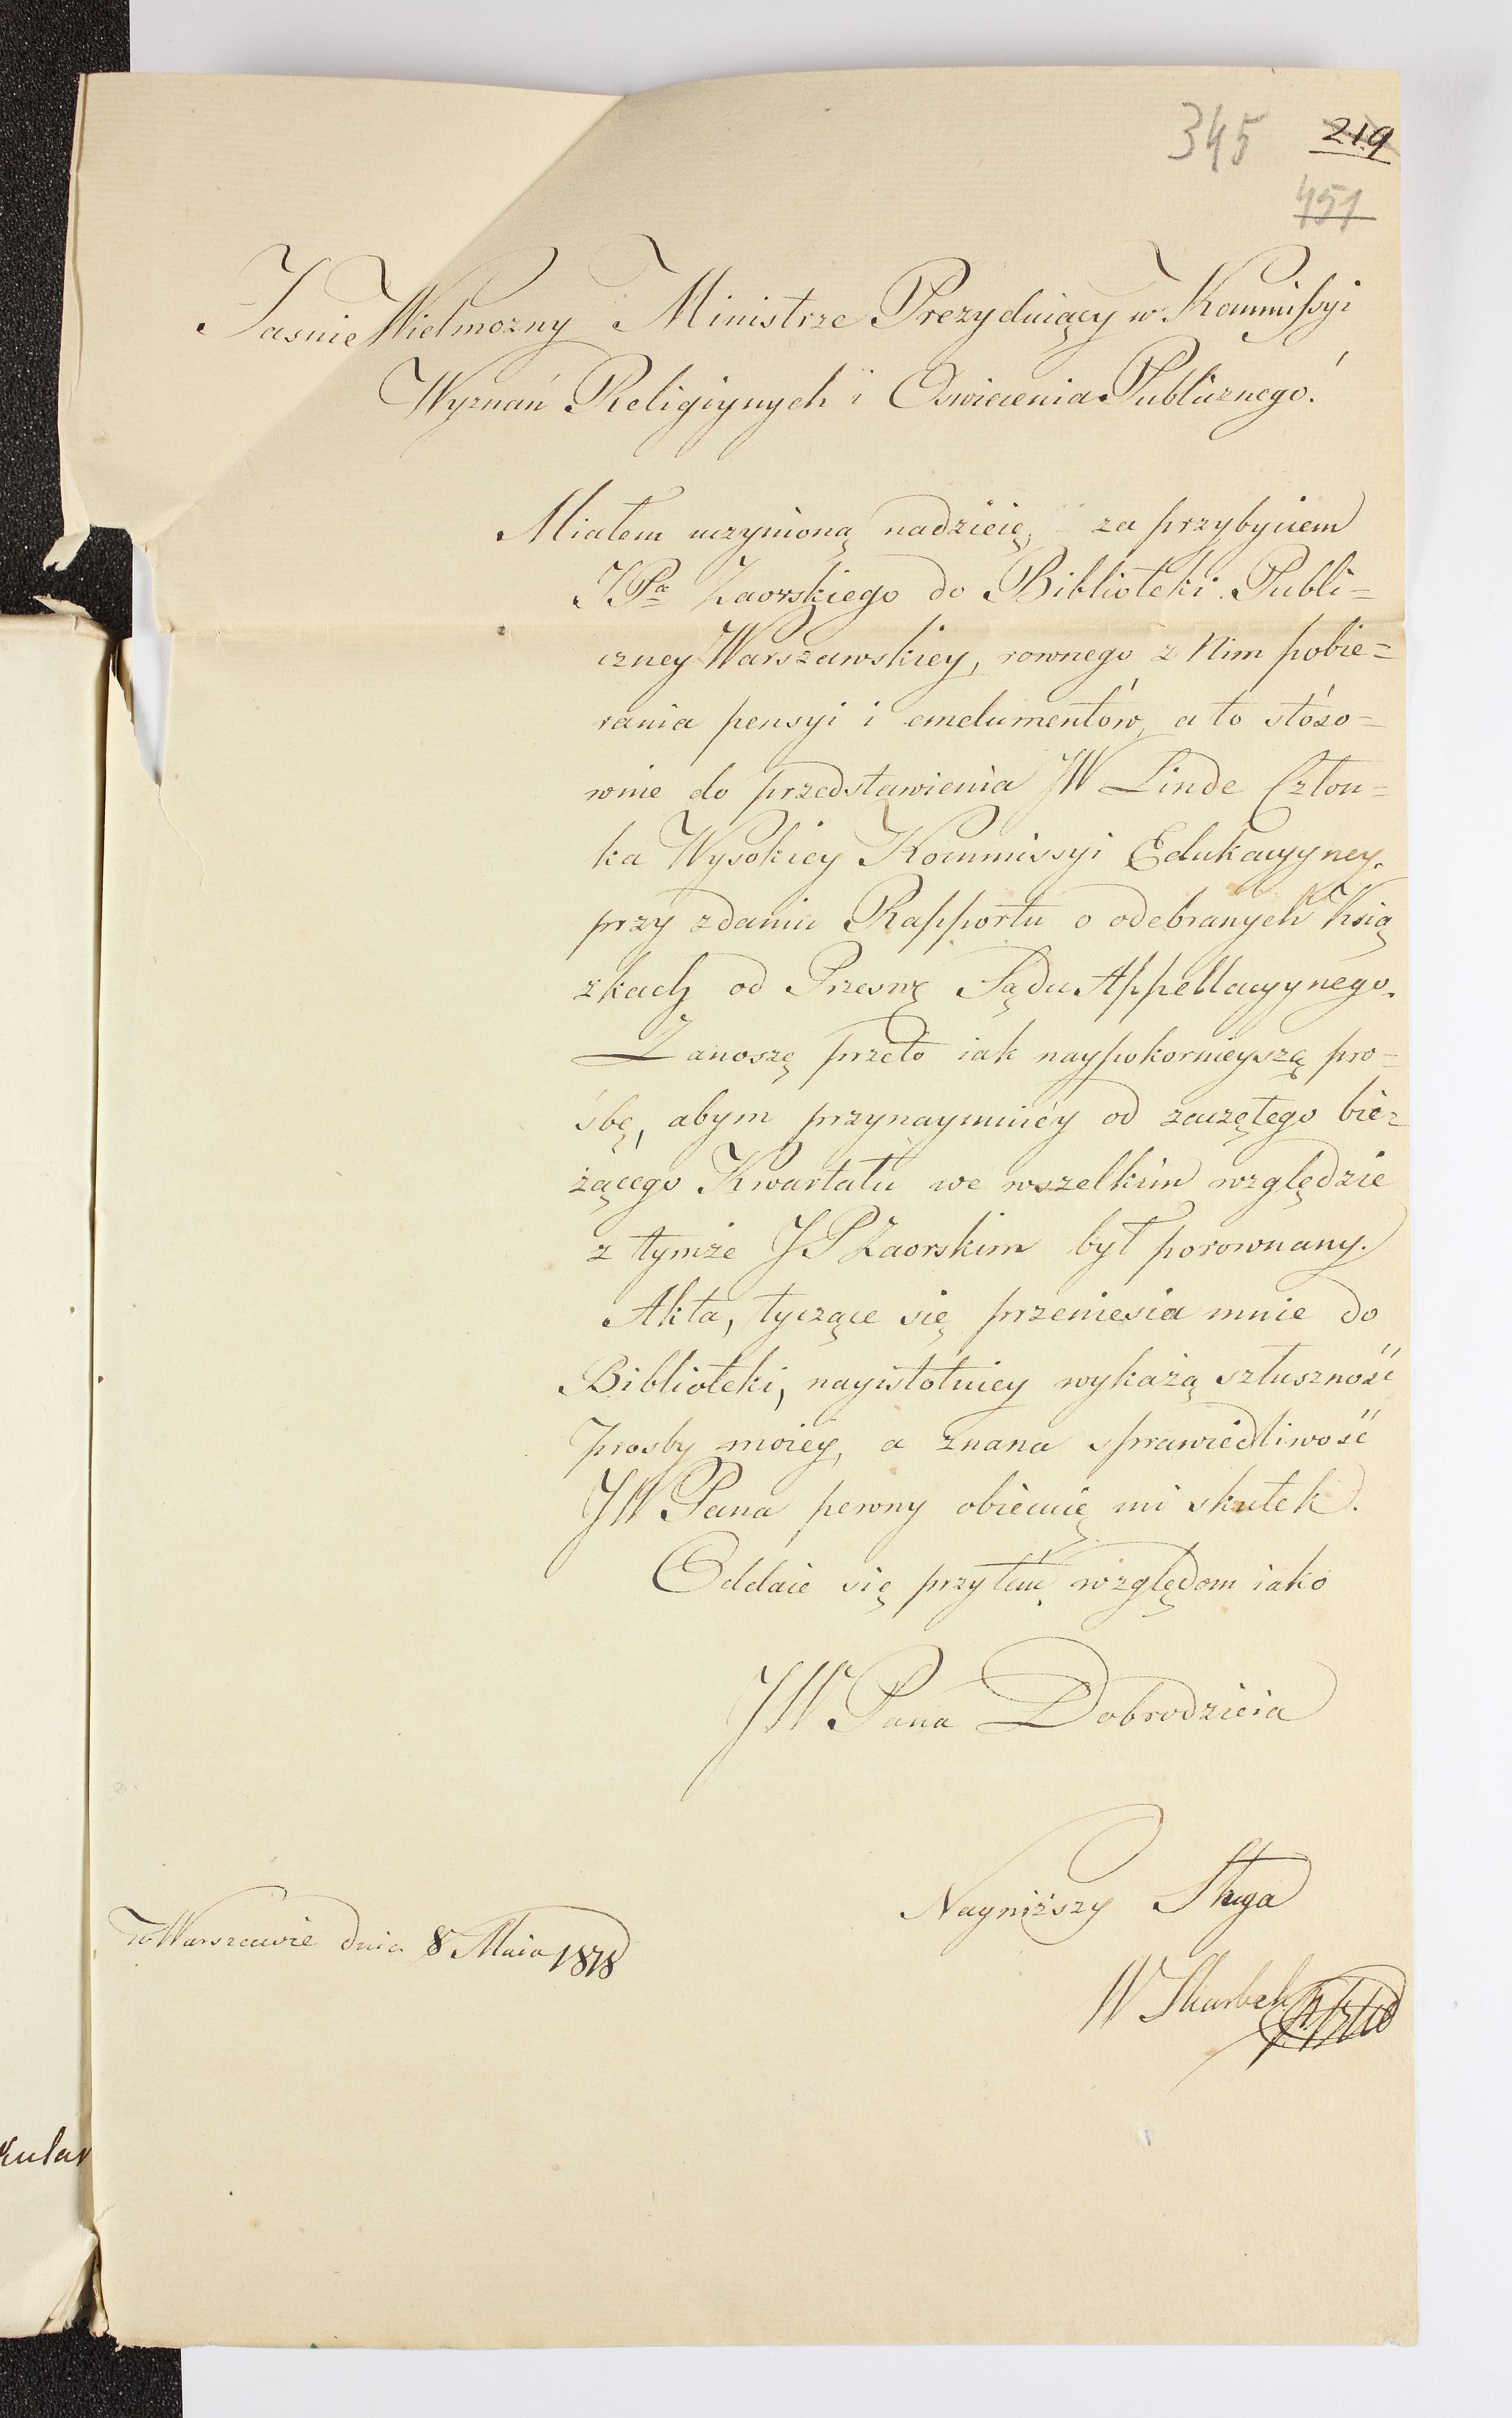 345 219
451
Jasnie Wielmozny Ministrze Prezyduiący w Kommissyi
Wyznań Religiynych i Oswiecenia Publicznego!
Miałem uczynioną nadzieię, za przybyciem
JPa Zaorskiego do Biblioteki Publi=
czney Warszawskiey, rownego z Nim pobie=
rania pensyi i emolumentów, a to stóso=
wnie do przedstawienia JW Linde Człon=
ka Wysokiey Kommissyi Edukacyyney.
przy zdaniu Rapportu o odebranych Ksią
zkach od Prezesa Sądu Appellacyynego.
Zanoszę przeto iak naypokornieyszą pro=
śbę, abym przynaymniéy od zaczętego bie=
żącego Kwartału we wszelkim względzie
z tymże JP Zaorskim był porownany.
Akta, tyczące się przeniesia mnie do
Biblioteki, nayistotniey wykażą sztuszność
prosby moiéy, a znana sprawiedliwość
JW Pana pewny obiecuię mi skutek.
Oddaie się przytém względom iako
JW Pana Dobrodzieia
Nayniższy Sługa
w Warszawie dnia 8 Maia 1818
W Skarbek
kular